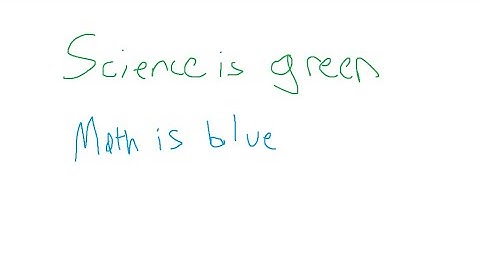 Science is green
Math is blue